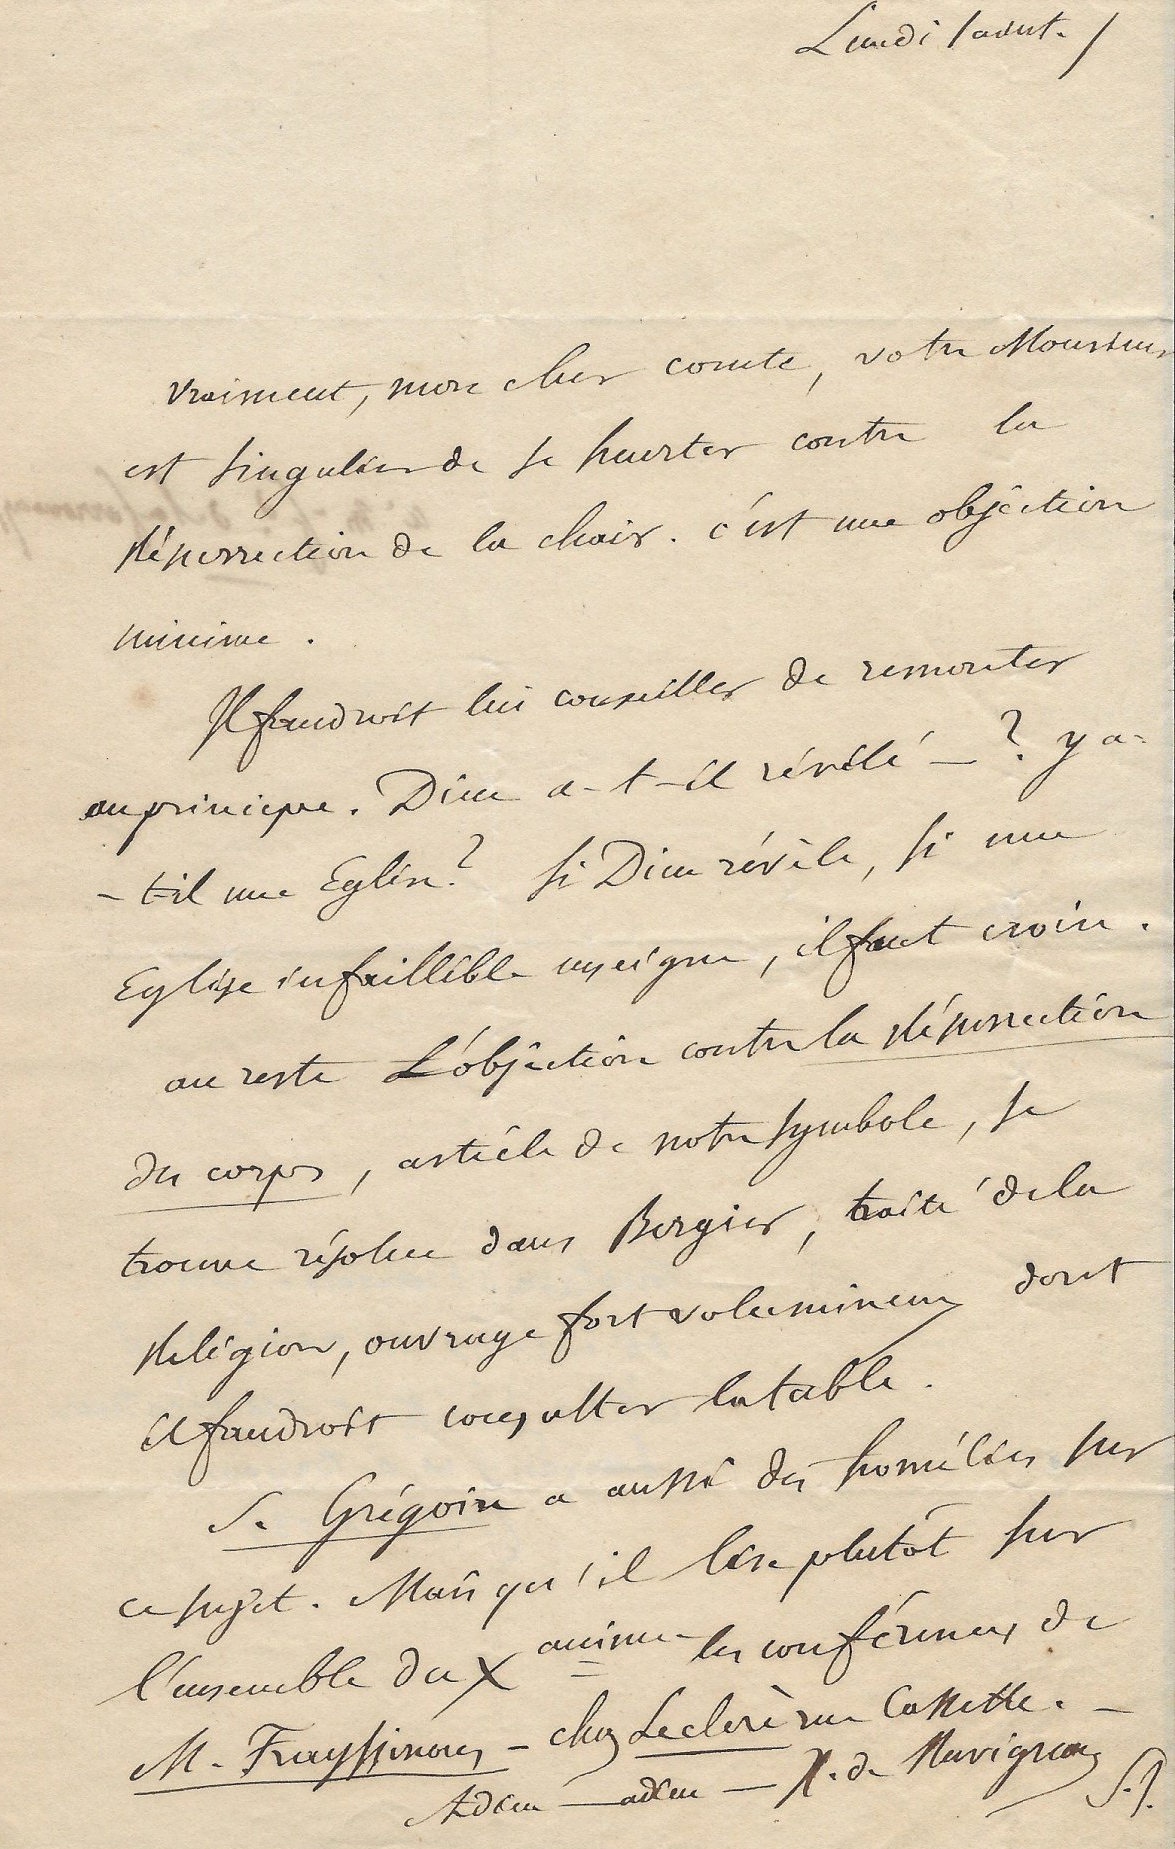 Lundi saint. /
Vraiment, mon cher comte, votre Monsieur
est singulier de se heurter contre la
Résurrection de la chair. c'est une objection
minime.
Il faudroit lui conseiller de remonter
au principe. Dieu a-t-il révélé — ? y a-
- t-il une Eglise ? Si Dieu révèle, si une
Eglise infaillible enseigne, il faut croire.
au reste L'objection contre la Résurrection
du corps, article de notre symbole, se
trouve résolue dans Bergier, traité de la
Religion, ouvrage fort volumineux dont
il faudroit consulter la table.
S. Grégoire a aussi des homélies sur
ce sujet. Mais qu'il lise plutôt sur
l'ensemble du X anisme les conférences de
M. Frayssinous — chez Leclerè rue Cassette. —
Adieu — adieu — X. de Ravignan
S. J.